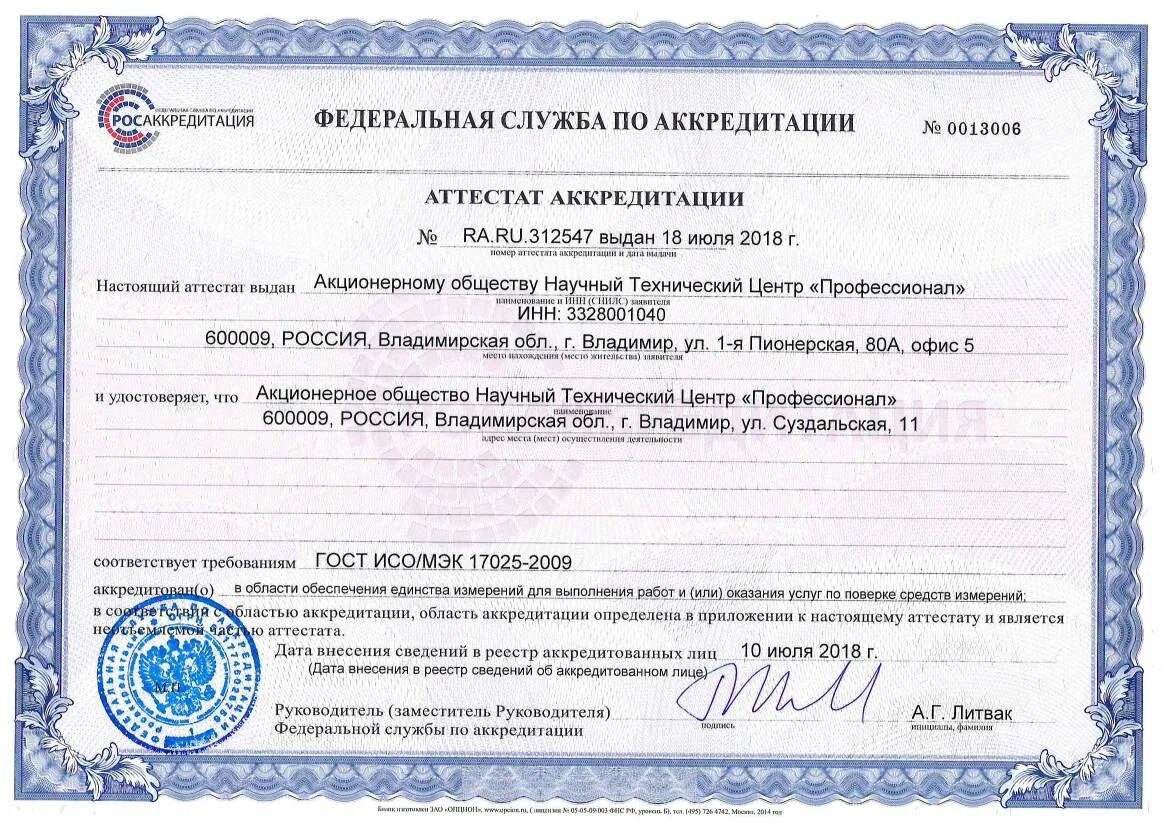 ФЕДЕРАЛЬНАЯ СЛУЖБА ПО АККРЕДИТАЦИИ
РОСАККРЕДИТАЦИЯ
ФЕДЕРАЛЬНАЯ СЛУЖБА ПО АККРЕДИТАЦИИ
№ 0013006
АТТЕСТАТ АККРЕДИТАЦИИ
№ RA.RU.312547 выдан 18 июля 2018 г.
номер аттестата аккредитации и дата выдачи
Настоящий аттестат выдан Акционерному обществу Научный Технический Центр «Профессионал»
наименование и ИНН (СНИЛС) заявителя
ИНН: 3328001040
600009, РОССИЯ, Владимирская обл., г. Владимир, ул. 1-я Пионерская, 80А, офис 5
место нахождения (место жительства) заявителя
и удостоверяет, что Акционерное общество Научный Технический Центр «Профессионал»
наименование
600009, РОССИЯ, Владимирская обл., г. Владимир, ул. Суздальская, 11
адрес места (мест) осуществления деятельности
соответствует требованиям ГОСТ ИСО/МЭК 17025-2009
аккредитован(о) в области обеспечения единства измерений для выполнения работ и (или) оказания услуг по поверке средств измерений;
в соответствии с областью аккредитации, область аккредитации определена в приложении к настоящему аттестату и является
неотъемлемой частью аттестата.
Дата внесения сведений в реестр аккредитованных лиц 10 июля 2018 г.
(Дата внесения в реестр сведений об аккредитованном лице)
М.П.
Руководитель (заместитель Руководителя)
Федеральной службы по аккредитации
подпись
А.Г. Литвак
инициалы, фамилия
Бланк изготовлен ЗАО «ОПЦИОН», www.opcion.ru, ( лицензия № 05-05-09/003 ФНС РФ, уровень Б), тел. (495) 726 4742, Москва, 2014 год